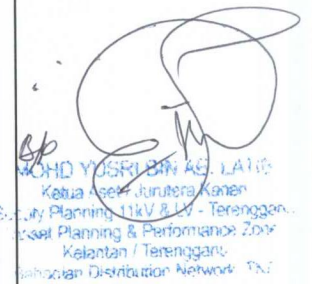 b/p
MOHD YUSRI BIN AB. LATIF
Ketua Aset / Jurutera Kanan
Planning 11kV & LV - Terengganu
Asset Planning & Performance Zone
Kelantan / Terengganu
Bahagian Distribution Network, TNB